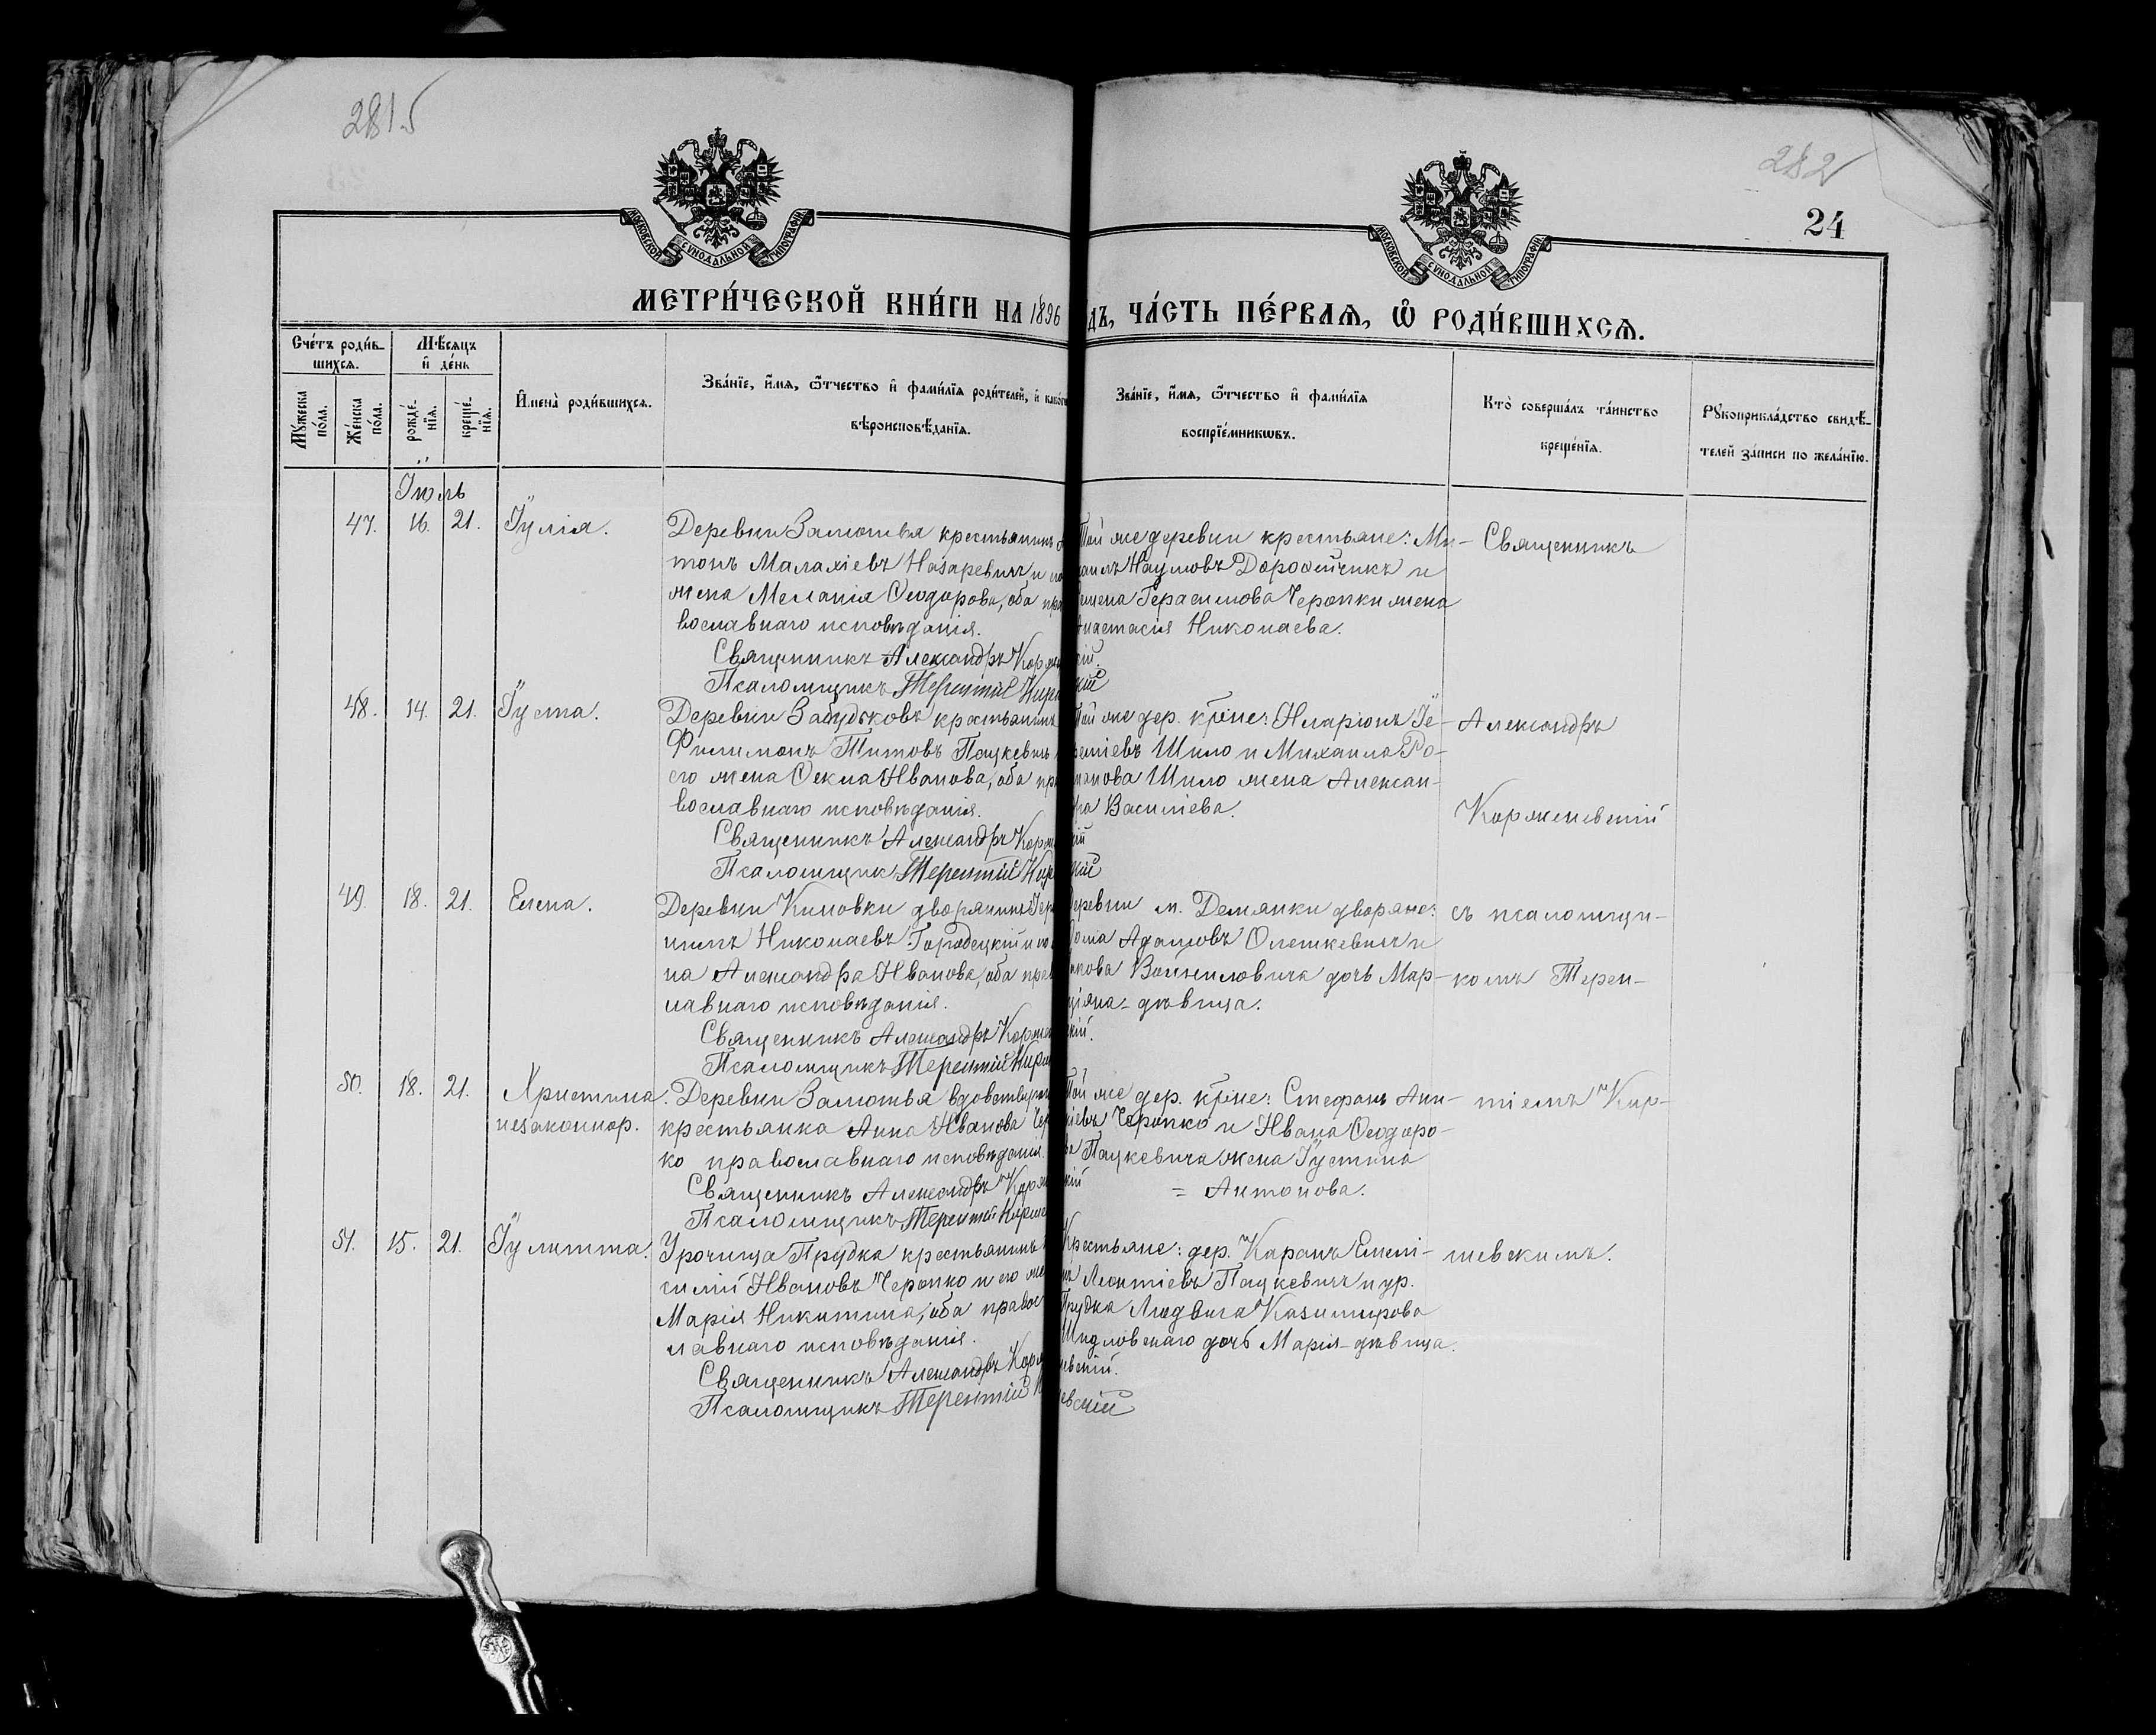 2815
282
24
МОСКОВСКОЙ СУНОДАЛЬНОЙ ТИПОГРАФІИ
МОСКОВСКОЙ СУНОДАЛЬНОЙ ТИПОГРАФІИ
МЕТРИ́ЧЕСКОЙ КНИ́ГИ НА 1896
дъ, ЧА́СТЬ ПЕ́РВАѦ, Ѡ҆ РОДИ́ВШИХСѦ.
Сче́тъ роди́в-
шихсѧ.
Мꙋ́жеска по́ла.
Же́нска по́ла.
Мѣ́сѧцъ
и҆ де́нь
рожде́-
нїѧ.
креще́-
нїѧ.
И҆мена̀ роди́вшихсѧ.
Зва́нїе, и҆́мѧ, ѻ҆́тчество и҆ фами́лїѧ роди́телей, и҆
вѣроисповѣ́данїѧ.
Зва́нїе, и҆́мѧ, ѻ҆́тчество и҆ фами́лїѧ
воспрїе́мникѡвъ.
Кто̀ соверша́лъ та́инство
креще́нїѧ.
Рꙋкоприкла́дство свидѣ́-
телей за́писи по жела́нїю.
Іюль
47. 16. 21. Іулія.
Деревни Залютья крестьянинъ
тонъ Малахіевъ Назаревичъ и
жена Меланія Ѳеодорова, оба пра
вославнаго исповѣданія.
Священникъ Александръ Корже
Псаломщикъ Терентій Кирк
Той же деревни крестьяне: Ми-
хаилъ Наумовъ Дорофейчикъ и
Герасимова Черопки жена
Анастасія Николаева.
кій.
кій
Священникъ
48. 14. 21. Іуста.
Деревни Забудьковъ крестьянинъ
Филимонъ Титовъ Пацкевичъ
его жена Ѳекла Иванова, оба пра
вославнаго исповѣданія.
Священникъ Александръ Корже
Псаломщикъ Терентій Кир
Той же дер. кр̃не: Иларіонъ Те-
рентіевъ Шило и Михаила Ро-
манова Шило жена Алексан-
дра Василіева.
кій
кій
Александръ
Корженевскій
49. 18. 21. Елена.
Деревни Килковки дворянинъ Гер
шимъ Николаевъ Городецкій и
на Александра Иванова, оба право
лавнаго исповѣданія.
Священникъ Александръ Корже
Псаломщикъ Терентій Кирк
Деревни м. Демянки дворяне:
Ѳома Адамовъ Олешкевичъ и
Якова Войниловича дочь Мар-
ціяна-дѣвица.
кій.
съ псаломщи-
комъ Терен-
50. 18. 21. Христина
незаконнор.
Деревни Залютья вдовствующ
крестьянка Анна Иванова Чер
ко православнаго исповѣданія.
Священникъ Александръ Корж
Псаломщикъ Терентій Кирк
Той же дер. кр̃не: Стефанъ Ани-
кіевъ Черопко и Ивана Ѳеодоро-
ва Пацкевича жена Іустина
= Антонова.
кій
тіемъ Кир-
51. 15. 21. Іулитта.
Урочища Прудка крестьянинъ
силій Ивановъ Черопко и его же
Марія Никитина, оба правос
лавнаго исповѣданія.
Священникъ Александръ Корж
Псаломщикъ Терентій
Крестьяне: дер. Каранъ Емелі-
Леонтіевъ Пацкевичъ и ур.
Прудка Людвига Казимирова
Шидловскаго дочь Марія-дѣвица.
невскій.
евскій
шевскимъ.